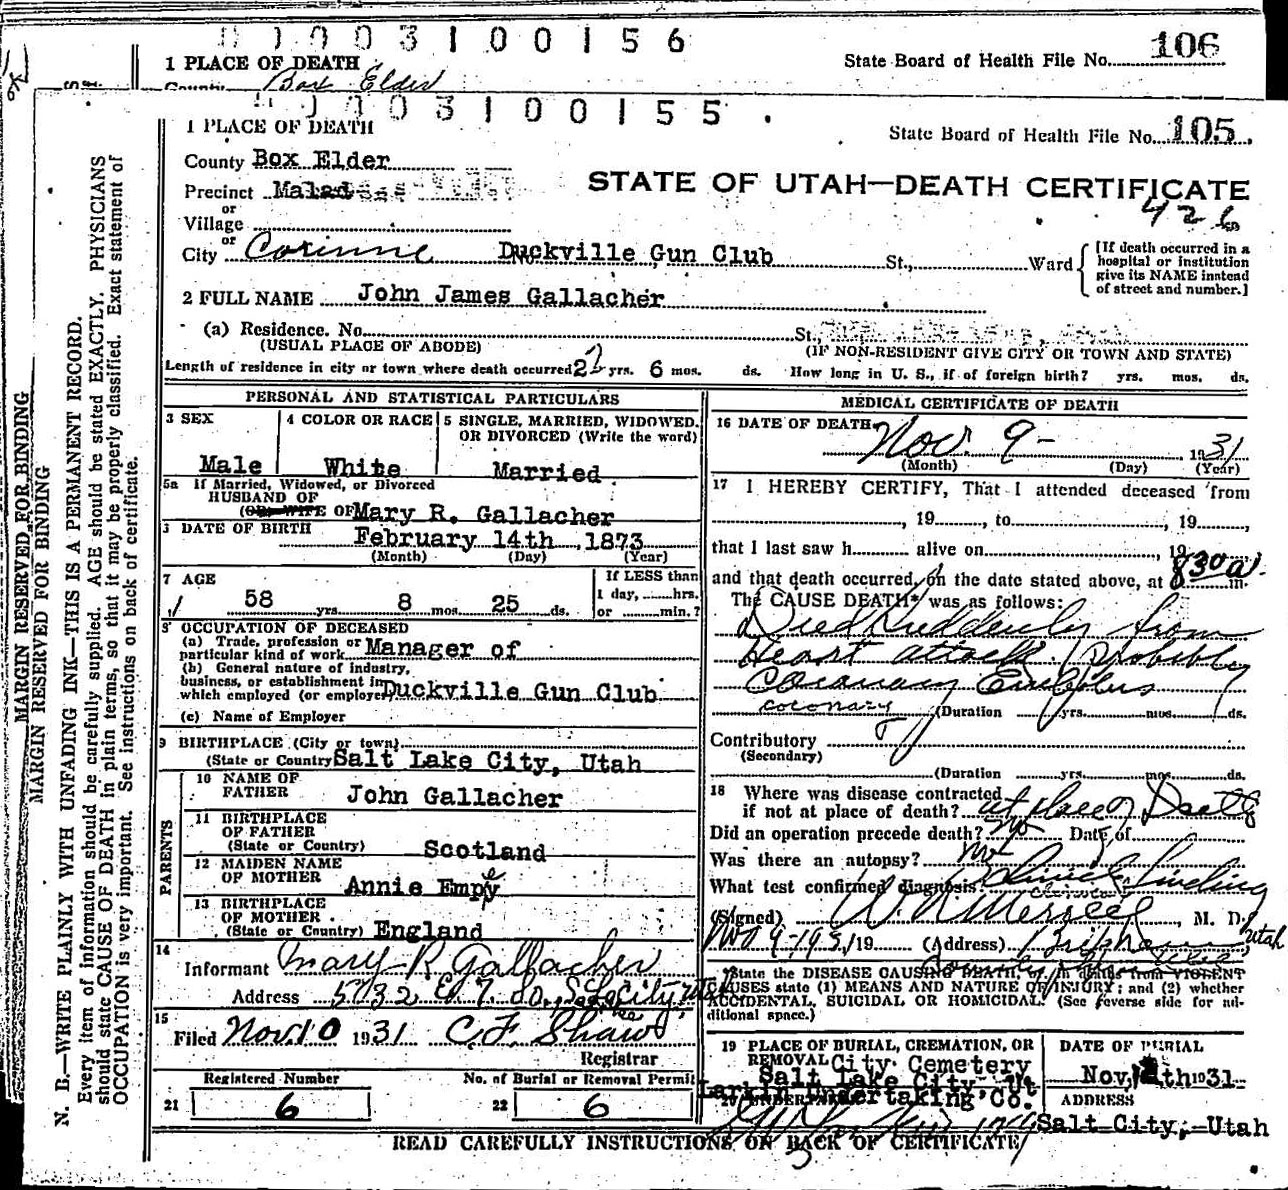 0003100156
1 PLACE OF DEATH
State Board of Health File No. 106
County Box Elder
0003100155
1 PLACE OF DEATH
State Board of Health File No. 105
County Box Elder
Precinct Malad
STATE OF UTAH—DEATH CERTIFICATE
426
or
Village
or
City Corinne Duckville Gun Club St., Ward
[If death occurred in a hospital or institution give its NAME instead of street and number.]
2 FULL NAME John James Gallacher
(a) Residence. No. St.,
(USUAL PLACE OF ABODE) (IF NON-RESIDENT GIVE CITY OR TOWN AND STATE)
Length of residence in city or town where death occurred 22 yrs. 6 mos. ds. How long in U. S., if of foreign birth? yrs. mos. ds.
PERSONAL AND STATISTICAL PARTICULARS
3 SEX 4 COLOR OR RACE 5 SINGLE, MARRIED, WIDOWED, OR DIVORCED (Write the word)
Male White Married
5a If Married, Widowed, or Divorced
HUSBAND OF
(OR WIFE OF Mary R. Gallacher
DATE OF BIRTH
February 14th, 1873
(Month) (Day) (Year)
7 AGE If LESS than
1 day, hrs.
58 yrs. 8 mos. 25 ds. or min.?
OCCUPATION OF DECEASED
(a) Trade, profession or
particular kind of work Manager of
(b) General nature of industry,
business, or establishment in
which employed (or employer Duckville Gun Club
(c) Name of Employer
9 BIRTHPLACE (City or town)
(State or Country Salt Lake City, Utah
PARENTS
10 NAME OF
FATHER John Gallacher
11 BIRTHPLACE
OF FATHER
(State or Country) Scotland
12 MAIDEN NAME
OF MOTHER Annie Empey
13 BIRTHPLACE
OF MOTHER
(State or Country) England
14
Informant Mary R Gallacher
Address
15
Filed Nov. 10 1931 C. F. Shaw
Registrar
Registered Number No. of Burial or Removal Permit
21 6 22 6
MEDICAL CERTIFICATE OF DEATH
16 DATE OF DEATH
Nov. 9- 1931
(Month) (Day) (Year)
17 I HEREBY CERTIFY, That I attended deceased from
, 19 , to , 19 ,
that I last saw h alive on , 19
and that death occurred, on the date stated above, at 830 a m.
The CAUSE DEATH* was as follows:
Died Suddenly from
Heart attack. Probably
Coronary Embolus
coronary (Duration yrs. mos. ds.
Contributory
(Secondary)
(Duration yrs. mos. ds.
18 Where was disease contracted
if not at place of death? at place of Death
Did an operation precede death? No Date of
Was there an autopsy? no
What test confirmed diagnosis? Clinical finding
(Signed) , M. D.
Nov 9-1931 19 (Address) Brigham Utah
*State the DISEASE CAUSING DEATH, or, in deaths from VIOLENT
CAUSES state (1) MEANS AND NATURE OF INJURY; and (2) whether
ACCIDENTAL, SUICIDAL OR HOMICIDAL. (See reverse side for additional space.)
19 PLACE OF BURIAL, CREMATION, OR DATE OF BURIAL
REMOVAL City Cemetery
Salt Lake City Ut Nov, 12th 1931
Larkin Undertaking Co. ADDRESS
20 UNDERTAKER
Salt City, Utah
READ CAREFULLY INSTRUCTIONS ON BACK OF CERTIFICATE
MARGIN RESERVED FOR BINDING
MARGIN RESERVED FOR BINDING
N. B.—WRITE PLAINLY WITH UNFADING INK—THIS IS A PERMANENT RECORD.
Every item of information should be carefully supplied. AGE should be stated EXACTLY. PHYSICIANS
should state CAUSE OF DEATH in plain terms, so that it may be properly classified. Exact statement of
OCCUPATION is very important. See instructions on back of certificate.